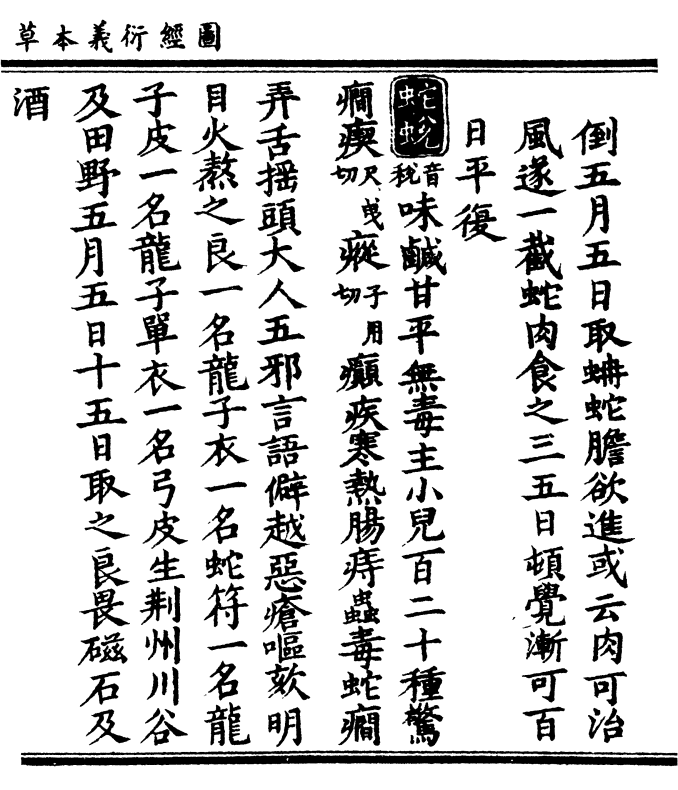 圖經衍義本草
倒五月五日取蚺蛇膽欲進或云肉可治
風遂一截蛇肉食之三五日頓覺漸可百
日平復
蛇蛻音稅味鹹甘平無毒主小兒百二十種驚
癇瘈尺曳切瘲子用切癲疾寒熱腸痔蟲毒蛇癇
弄舌搖頭大人五邪言語僻越惡瘡嘔欬明
目火熬之良一名龍子衣一名蛇符一名龍
子皮一名龍子單衣一名弓皮生荆州川谷
及田野五月五日十五日取之良畏磁石及
酒